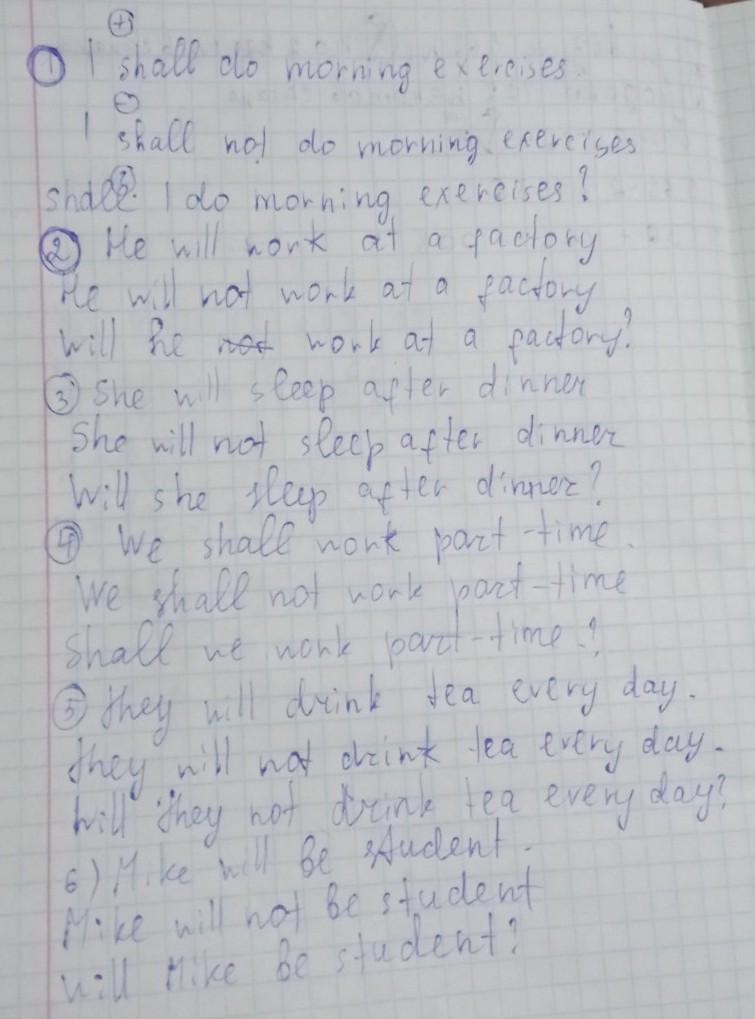 +
① I shall do morning exercises.
-
I shall not do morning exercises
Shall I do morning exercises?
② He will work at a factory
He will not work at a factory
Will he not work at a factory?
③ She will sleep after dinner
She will not sleep after dinner
Will she sleep after dinner?
④ We shall work part-time.
We shall not work part-time
Shall we work part-time?
⑤ They will drink tea every day.
They will not drink tea every day.
Will they not drink tea every day?
6) Mike will be student.
Mike will not be student
Will Mike be student?